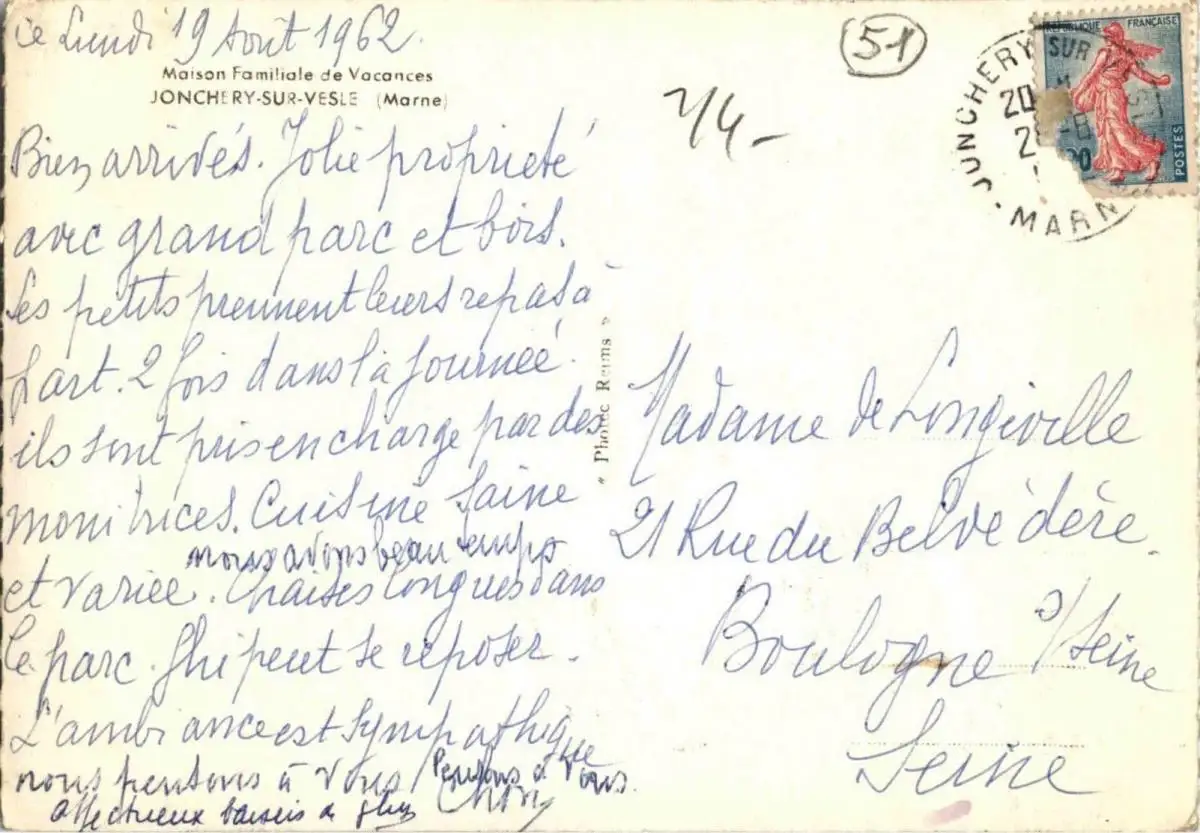 Ce Lundi 19 Août 1962.
Maison Familiale de Vacances
JONCHERY-SUR-VESLE (Marne)
Bien arrivés. Jolie propriété
avec grand parc et bois.
Les petits prennent leurs repas à
part. 2 fois dans la journée
ils sont pris en charge par des
monitrices. Cuisine saine
nous avons beau temps
et variée. Chaises longues dans
le parc. Ghi peut se reposer.
L'ambiance est sympathique
nous pensons à vous
Pensons à vous.
affectueux baisers
" Photec Reims "
51
7/4-
RÉPUBLIQUE FRANÇAISE
POSTES
JONCHERY SUR
20
MARN
Madame de Longeville
21 Rue du Belvédère.
Boulogne s/Seine
Seine